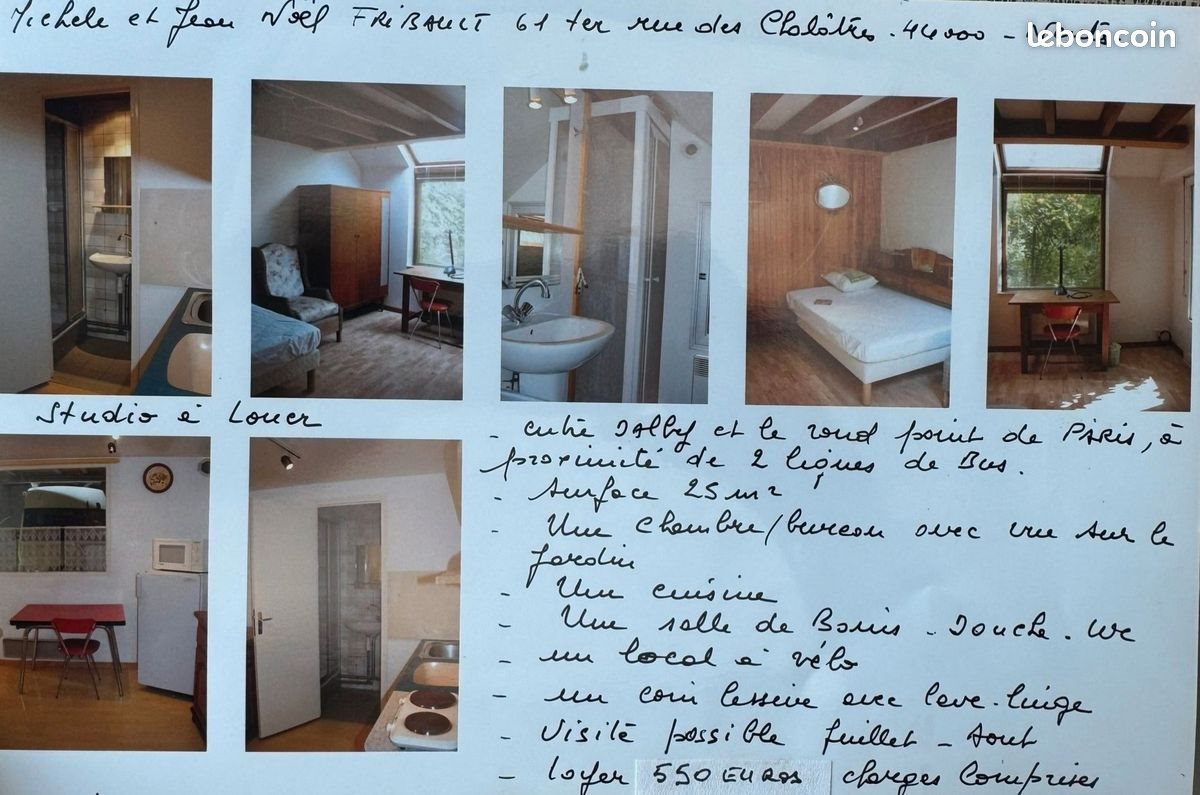 Michele et Jean Noël FRIBAULT 61 ter rue des Chalâtres - 44000 -
leboncoin
Studio à Louer
- entre Dalby et le rond point de PARIS, à
proximité de 2 lignes de Bus.
- Surface 25 m²
- Une chambre/bureau avec vue sur le
jardin
- Une cuisine
- Une salle de Bains - Douche - WC
- un local à vélo
- un coin lessive avec lave-linge
- Visite possible juillet - Août
- loyer 550 EUROS charges Comprises